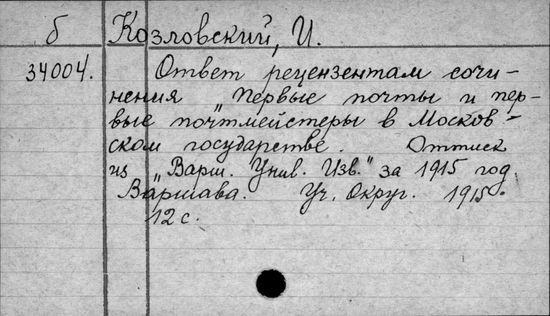 б Козловский, И.
34004. Ответ рецензентам сочи-
нения „Первые почты и пер-
вые почтмейстеры в Москов-
ском государстве. Оттиск
из „Варш. Унив. Изв." за 1915 год.
Варшава. Уч. Округ. 1915.
12 с.